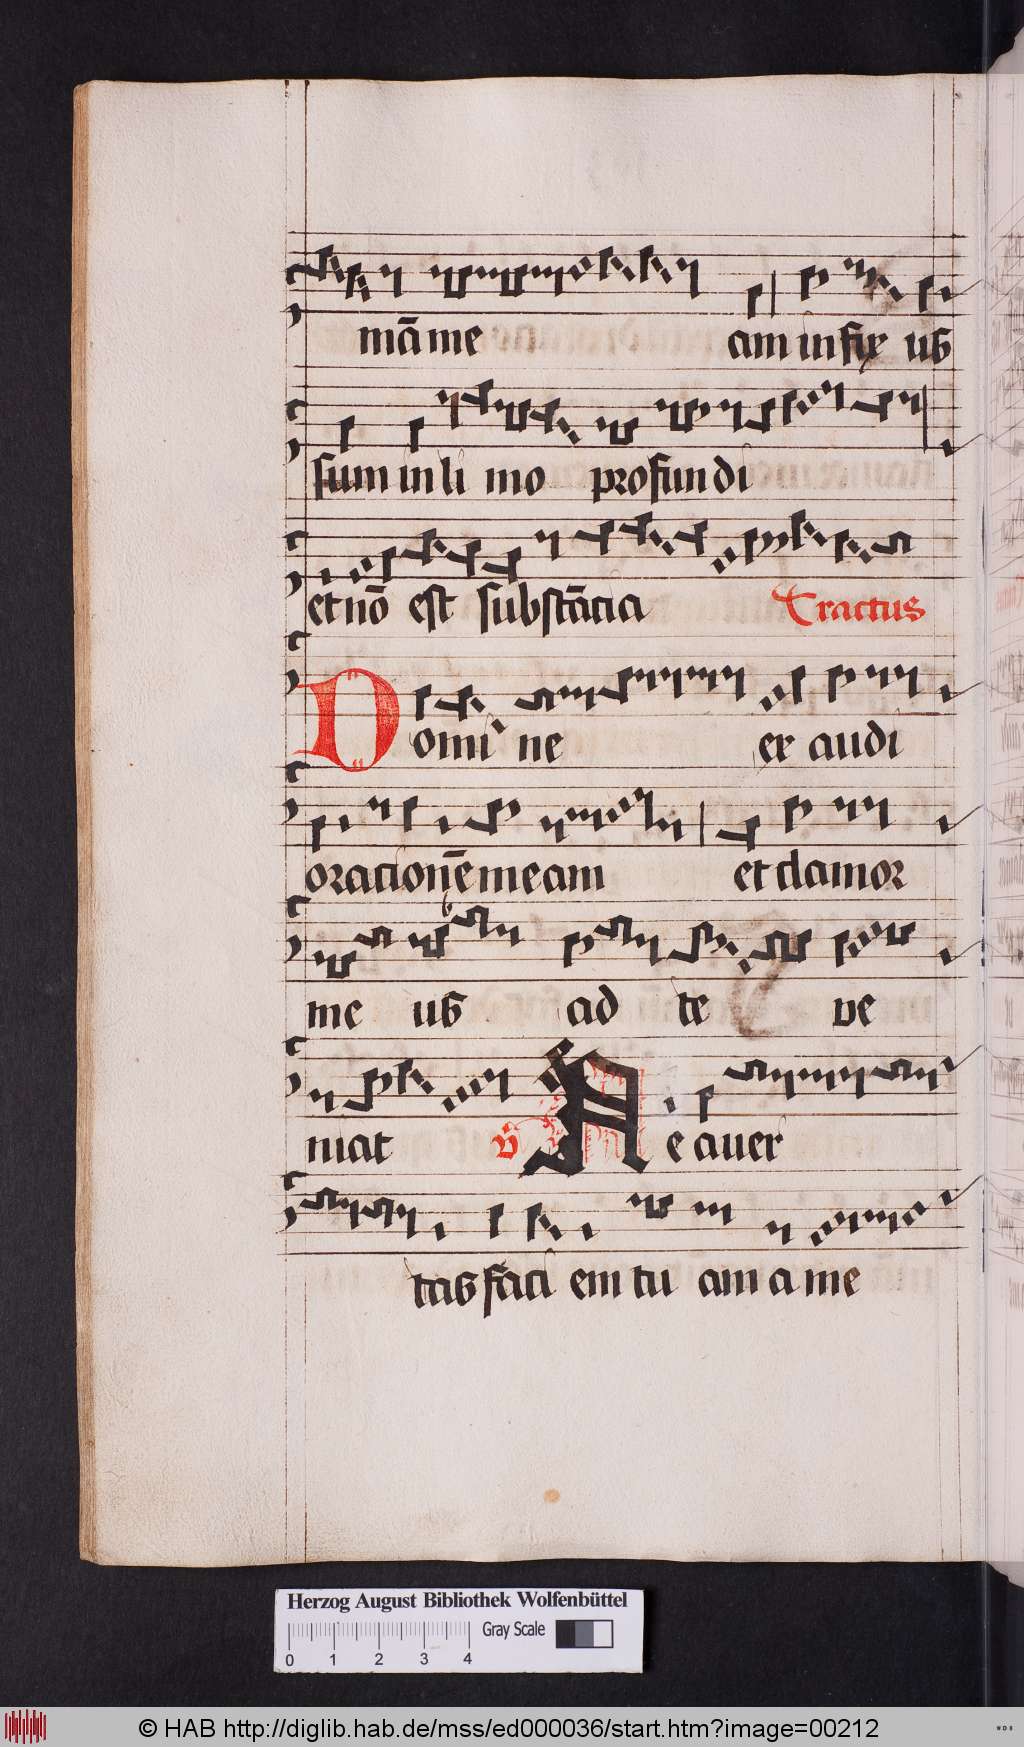 mā me am in fix us
sum in li mo profundi
et nō est substācia Tractus
Domi ne ex audi
oracionē meam et clamor
me us ad te ve
niat V Ne aver
tas faci em tu am a me
Herzog August Bibliothek Wolfenbüttel
0 1 2 3 4 Gray Scale
© HAB http://diglib.hab.de/mss/ed000036/start.htm?image=00212